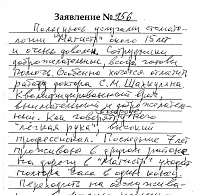 Заявление № 956
Пользуюсь услугами стомато-
логии "Магистр" около 15 лет
и очень довольна. Сотрудники
доброжелательные, всегда готовы
помочь. Особенно хочется отметить
работу доктора С.М.
Квалифицированный врач
внимательный и доброжелатель-
ный. Как говорят, у него
"легкая рука", высокий
профессионал. Последние 7 лет
проживаю в другом районе
на дорогу в "Магистр" уходит
полтора часа в один конец.
Переходить на обслужива-